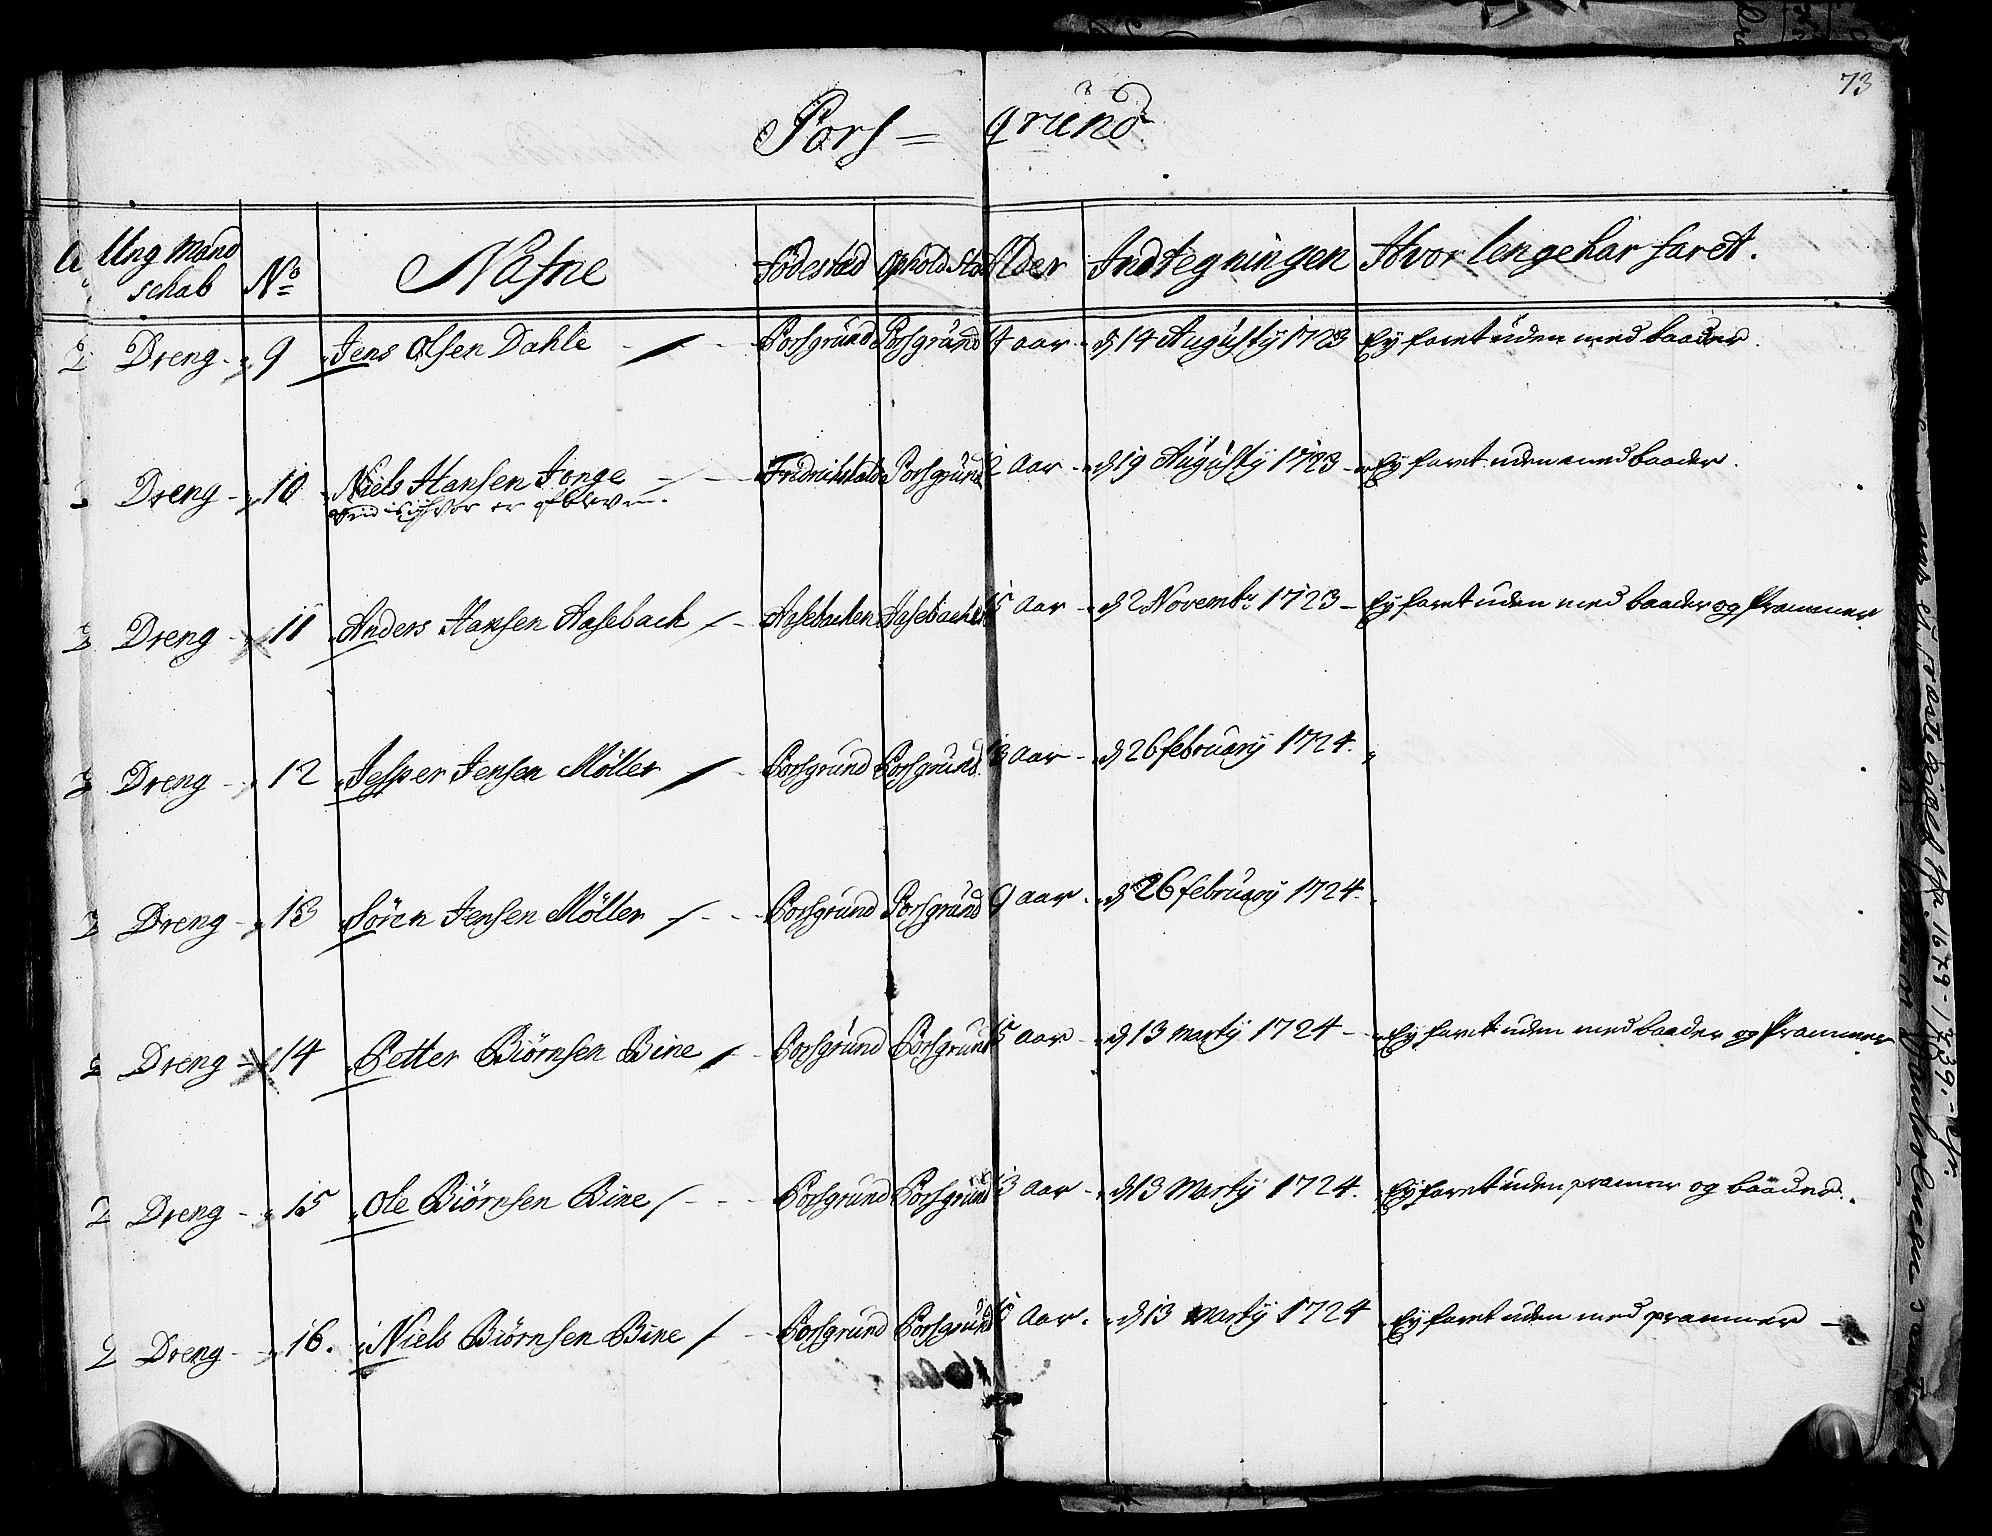 73
Pors = gründ
Ung Mand schab No Nafne Födestæd Ophold Stæd Alder Indtegningen Hvor lenge har faret.
Dreng - 9 Jens Olsen Dahle - Porsgrund Porsgrund 14 aar - d 14 Augusty 1723 Ey faret uden med baader.
Dreng - 10 Niels Hansen Tonge - Fridrichstad Porsgrund 12 Aar - d 19 Augusty 1723 - Ey faret uden med baader.
er
Dreng - 11 Anders Hansen Aasebach - Aasebachen Aasebachen 15 Aar - d 2 Novembr 1723 - Ey faret uden med baader og Prammer
Dreng - 12 Jesper Jensen Möller - Porsgrund Porsgrund 13 Aar - d 26 february 1724.
Dreng - 13 Sören Jensen Möller - Porsgrund Porsgrund 9 aar - d 26 february 1724.
Dreng 14 Petter Biörnsen Bine - Porsgrund Porsgrund 15 aar - d 13 Marty 1724 - Ey faret uden med baader og Prammer
Dreng - 15 Ole Biörnsen Bine - Porsgrund Porsgrund 13 Aar - d 13 Marty 1724. Ey faret uden pramer og baader.
Dreng - 16. Niels Biörnsen Bine - Porsgrund Porsgrund Aar. d 13 Marty 1724 Ey faret uden med prammer -
1679-1739.